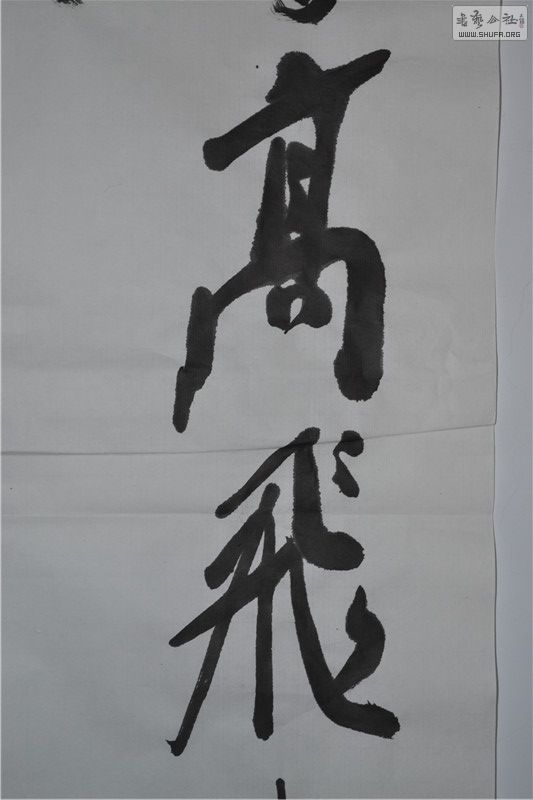 高飛
書藝公社
WWW.SHUFA.ORG